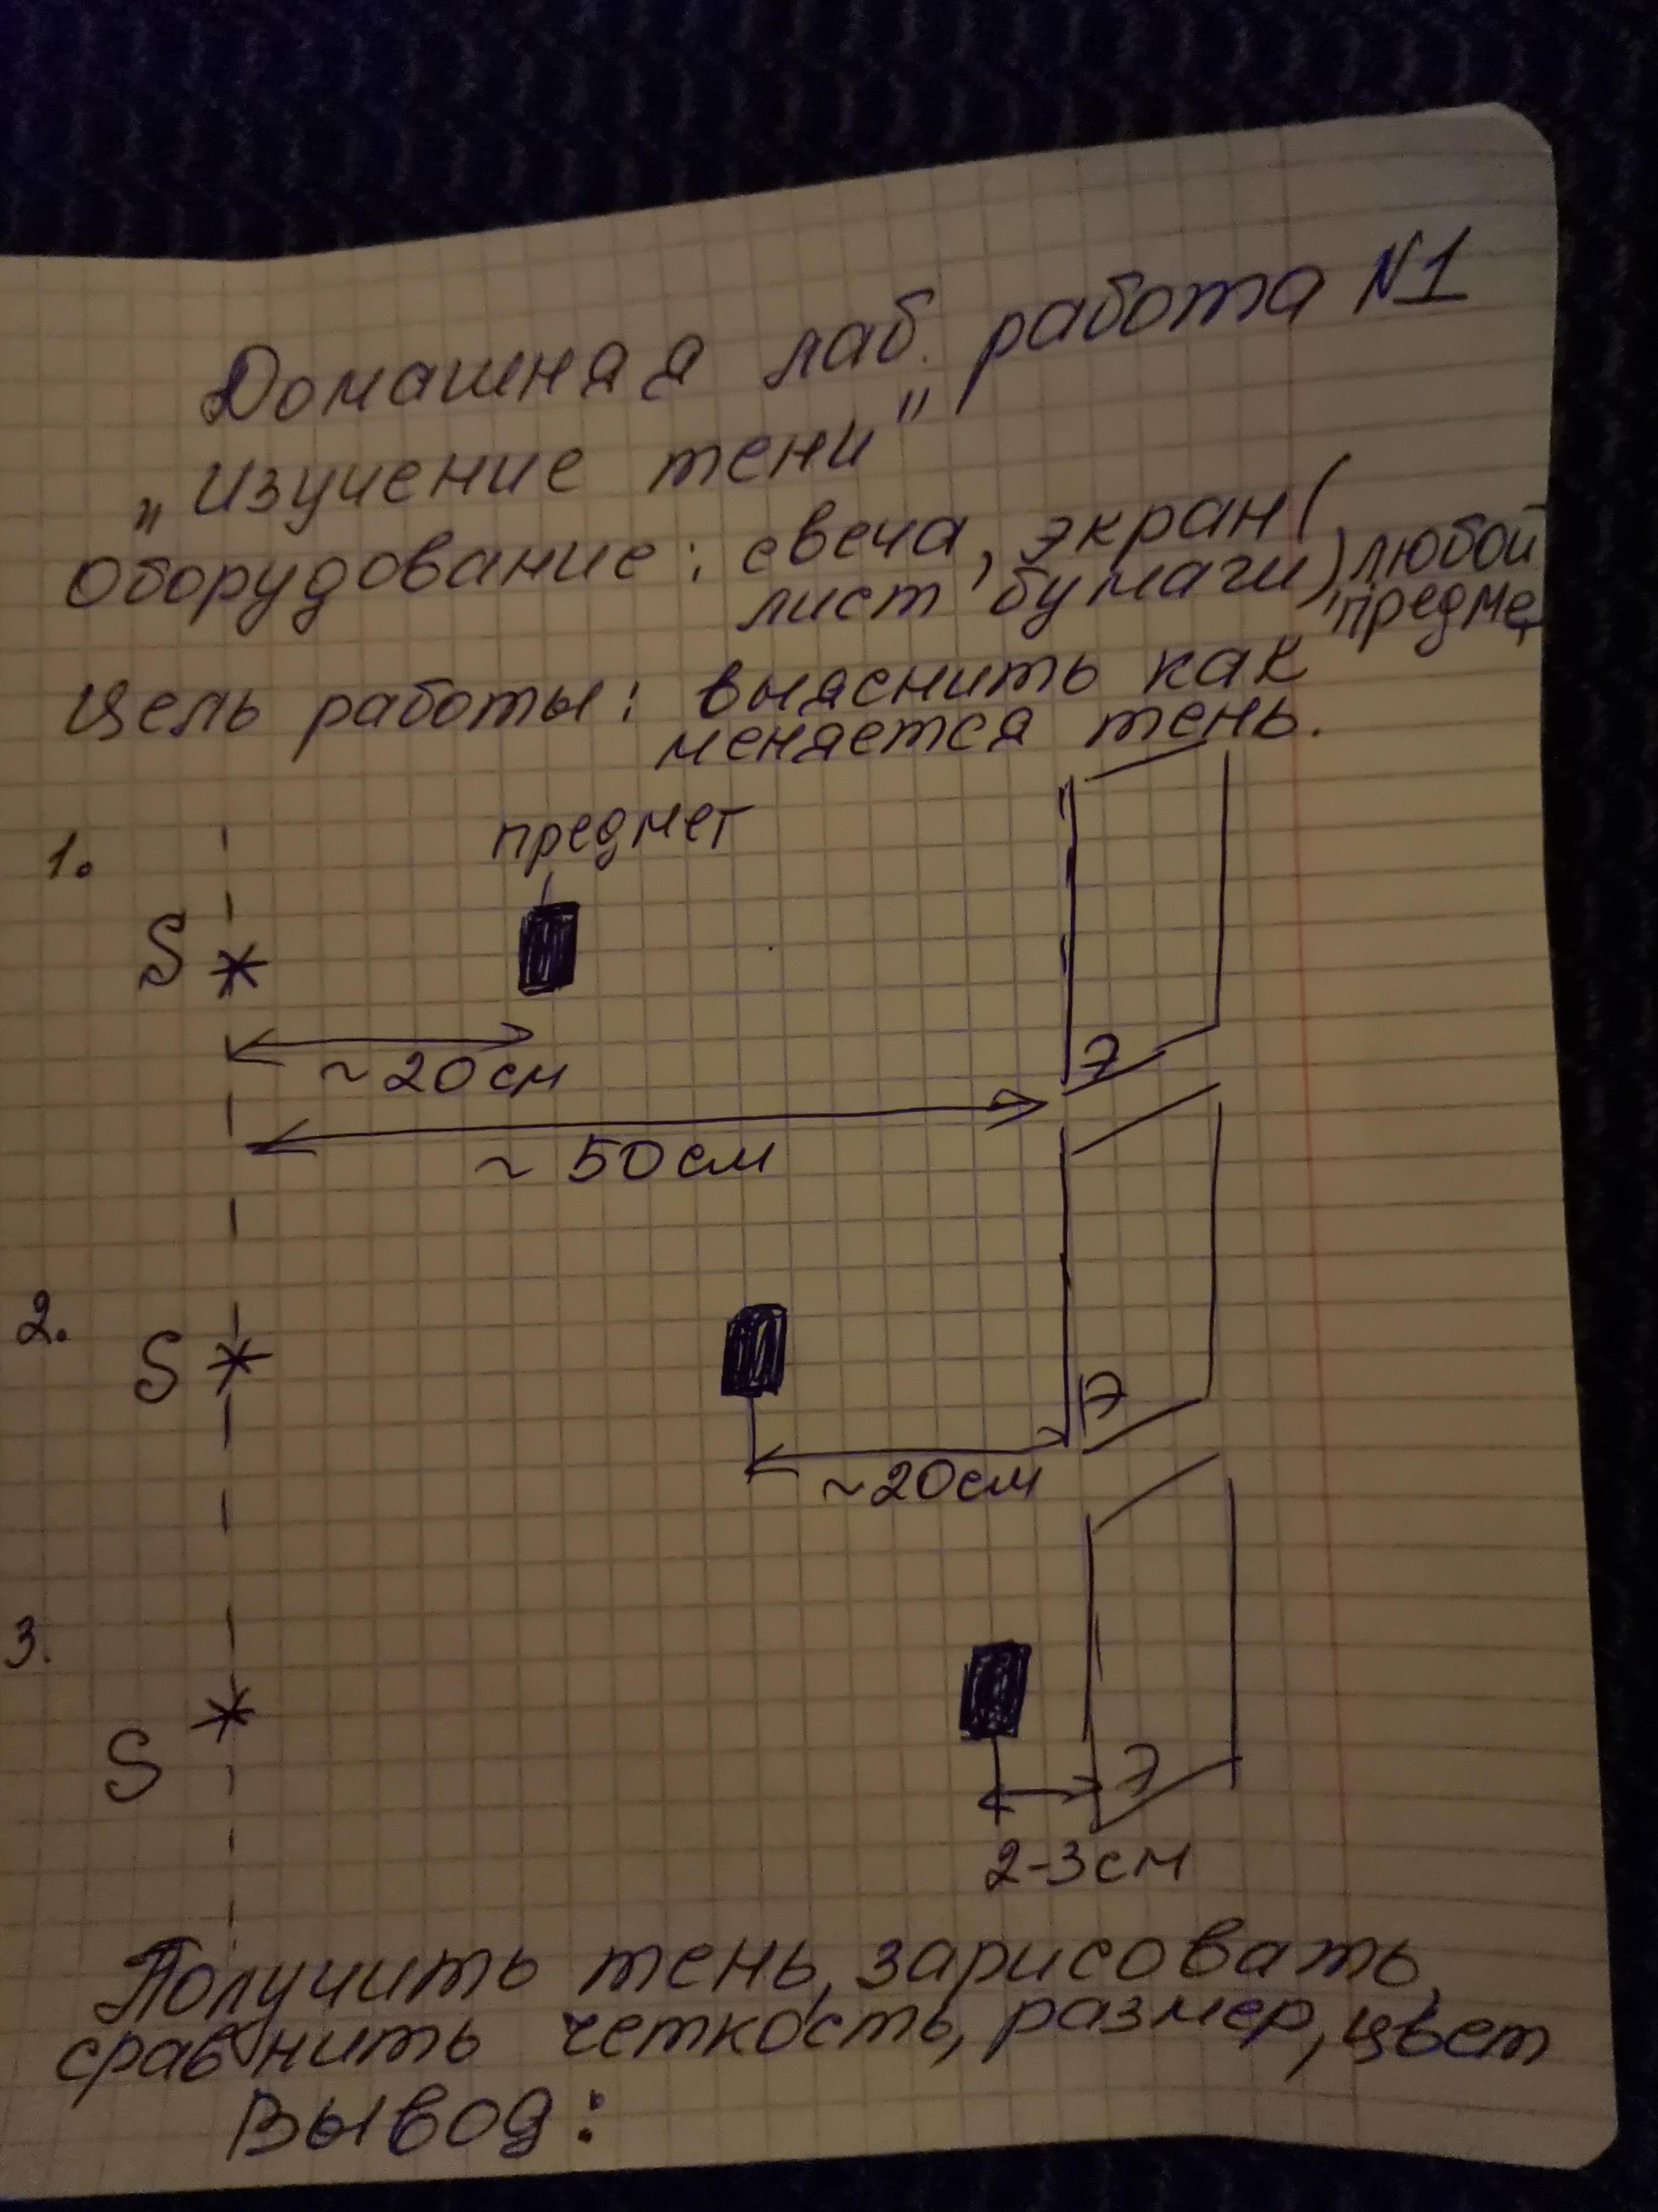 Домашняя лаб. работа №1
„Изучение тени"
Оборудование: свеча, экран(
лист бумаги), любой
предме
Цель работы: выяснить как
меняется тень.
1.
предмет
S
~20см
Э
~ 50см
2.
S
Э
~20см
3.
S
Э
2-3см
Получить тень, зарисовать,
сравнить четкость, размер, цвет
Вывод: